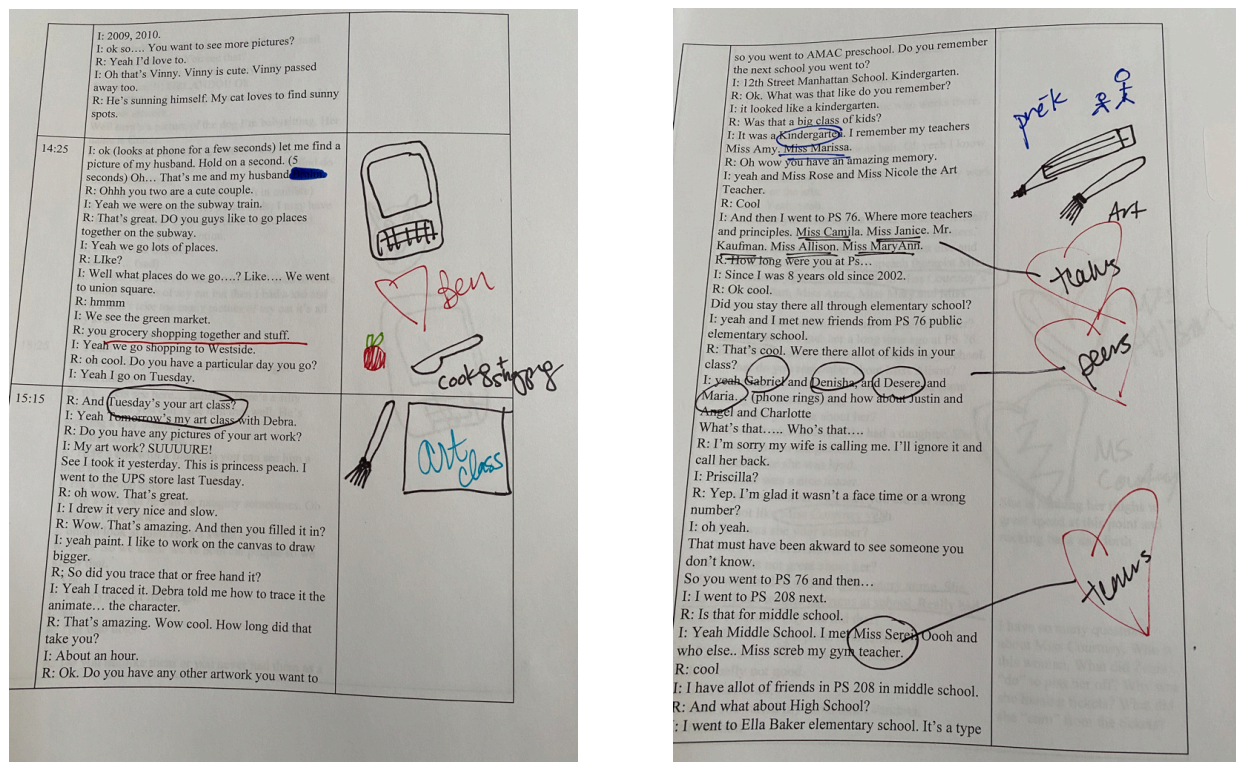 I: 2009, 2010.
I: ok so…. You want to see more pictures?
R: Yeah I'd love to.
I: Oh that's Vinny. Vinny is cute. Vinny passed
away too.
R: He's sunning himself. My cat loves to find sunny
spots.
14:25
I: ok (looks at phone for a few seconds) let me find a
picture of my husband. Hold on a second. (5
seconds) Oh… That's me and my husband
R: Ohhh you two are a cute couple.
I: Yeah we were on the subway train.
R: That's great. DO you guys like to go places
together on the subway.
I: Yeah we go lots of places.
R: LIke?
I: Well what places do we go….? Like…. We went
to union square.
R: hmmm
I: We see the green market.
R: you grocery shopping together and stuff.
I: Yeah we go shopping to Westside.
R: oh cool. Do you have a particular day you go?
I: Yeah I go on Tuesday.
Ben
cooking + shopping
15:15
R: And Tuesday's your art class?
I: Yeah Tomorrow's my art class with Debra.
R: Do you have any pictures of your art work?
I: My art work? SUUUURE!
See I took it yesterday. This is princess peach. I
went to the UPS store last Tuesday.
R: oh wow. That's great.
I: I drew it very nice and slow.
R: Wow. That's amazing. And then you filled it in?
I: yeah paint. I like to work on the canvas to draw
bigger.
R; So did you trace that or free hand it?
I: Yeah I traced it. Debra told me how to trace it the
animate… the character.
R: That's amazing. Wow cool. How long did that
take you?
I: About an hour.
R: Ok. Do you have any other artwork you want to
art
class
so you went to AMAC preschool. Do you remember
the next school you went to?
I: 12th Street Manhattan School. Kindergarten.
R: Ok. What was that like do you remember?
I: it looked like a kindergarten.
R: Was that a big class of kids?
I: It was a Kindergarten. I remember my teachers
Miss Amy. Miss Marissa.
R: Oh wow you have an amazing memory.
I: yeah and Miss Rose and Miss Nicole the Art
Teacher.
R: Cool
I: And then I went to PS 76. Where more teachers
and principles. Miss Camila. Miss Janice. Mr.
Kaufman. Miss Allison. Miss MaryAnn.
R: How long were you at Ps…
I: Since I was 8 years old since 2002.
R: Ok cool.
Did you stay there all through elementary school?
I: yeah and I met new friends from PS 76 public
elementary school.
R: That's cool. Were there allot of kids in your
class?
I: yeah Gabriel and Denisha, and Desere, and
Maria… (phone rings) and how about Justin and
Angel and Charlotte
What's that….. Who's that….
R: I'm sorry my wife is calling me. I'll ignore it and
call her back.
I: Priscilla?
R: Yep. I'm glad it wasn't a face time or a wrong
number?
I: oh yeah.
That must have been akward to see someone you
don't know.
So you went to PS 76 and then…
I: I went to PS 208 next.
R: Is that for middle school.
I: Yeah Middle School. I met Miss Serei. Oooh and
who else.. Miss screb my gym teacher.
R: cool
I: I have allot of friends in PS 208 in middle school.
R: And what about High School?
: I went to Ella Baker elementary school. It's a type
prek
Art
peers